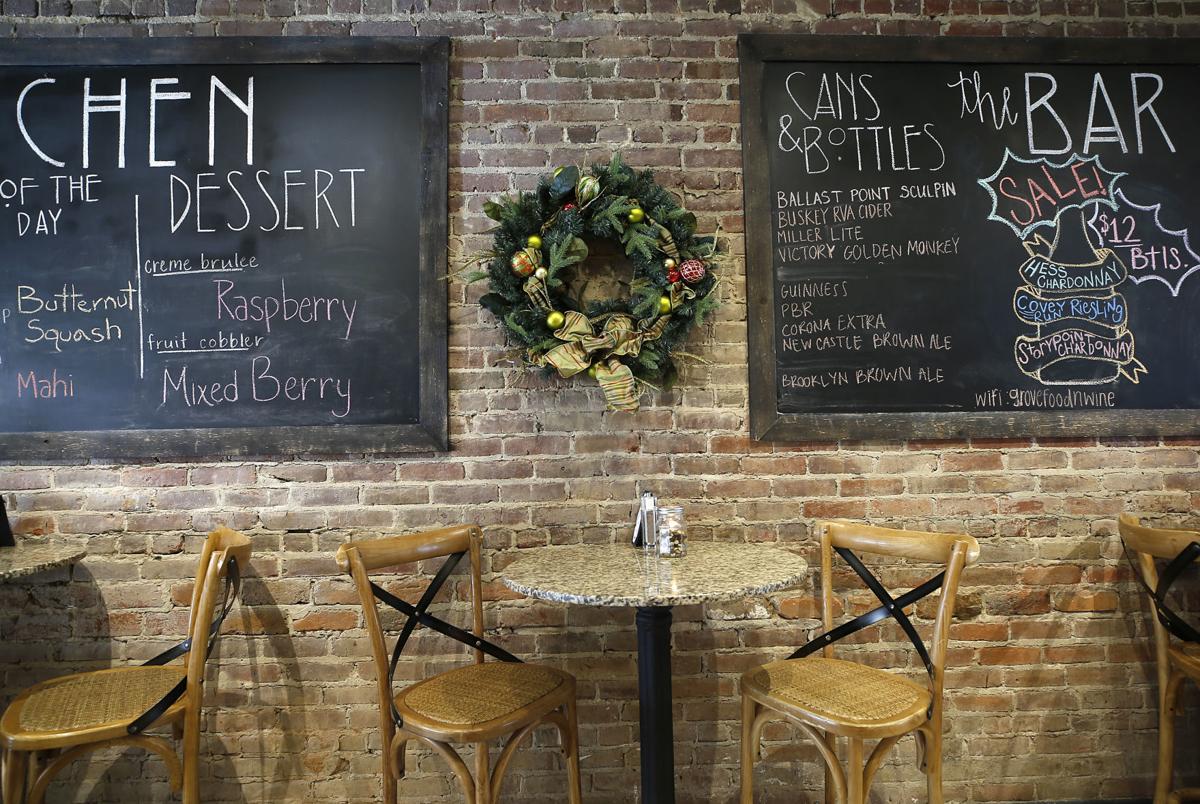 CHEN
OF THE
DAY
Butternut
Squash
Mahi
DESSERT
creme brulee
Raspberry
fruit cobbler
Mixed Berry
CANS
& BOTTLES
BALLAST POINT SCULPIN
BUSKEY RVA CIDER
MILLER LITE
VICTORY GOLDEN MONKEY
GUINNESS
PBR
CORONA EXTRA
NEW CASTLE BROWN ALE
BROOKLYN BROWN ALE
the BAR
SALE!
$12
Btls.
HESS
CHARDONNAY
COVEY RUN RIESLING
STORYPOINT CHARDONNAY
wifi: grovefoodnwine